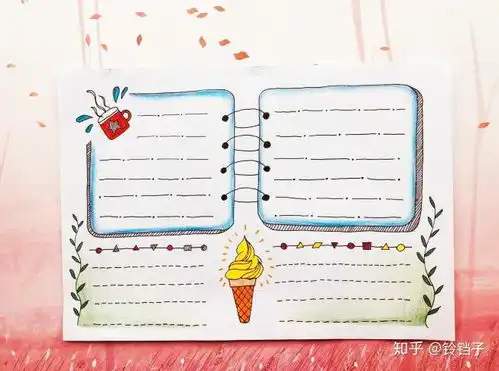 知乎 @铃铛子